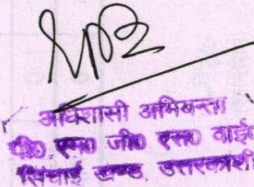 अधिशासी अभियन्ता
पी० एम० जी० एस० वाई०
सिंचाई खण्ड, उत्तरकाशी